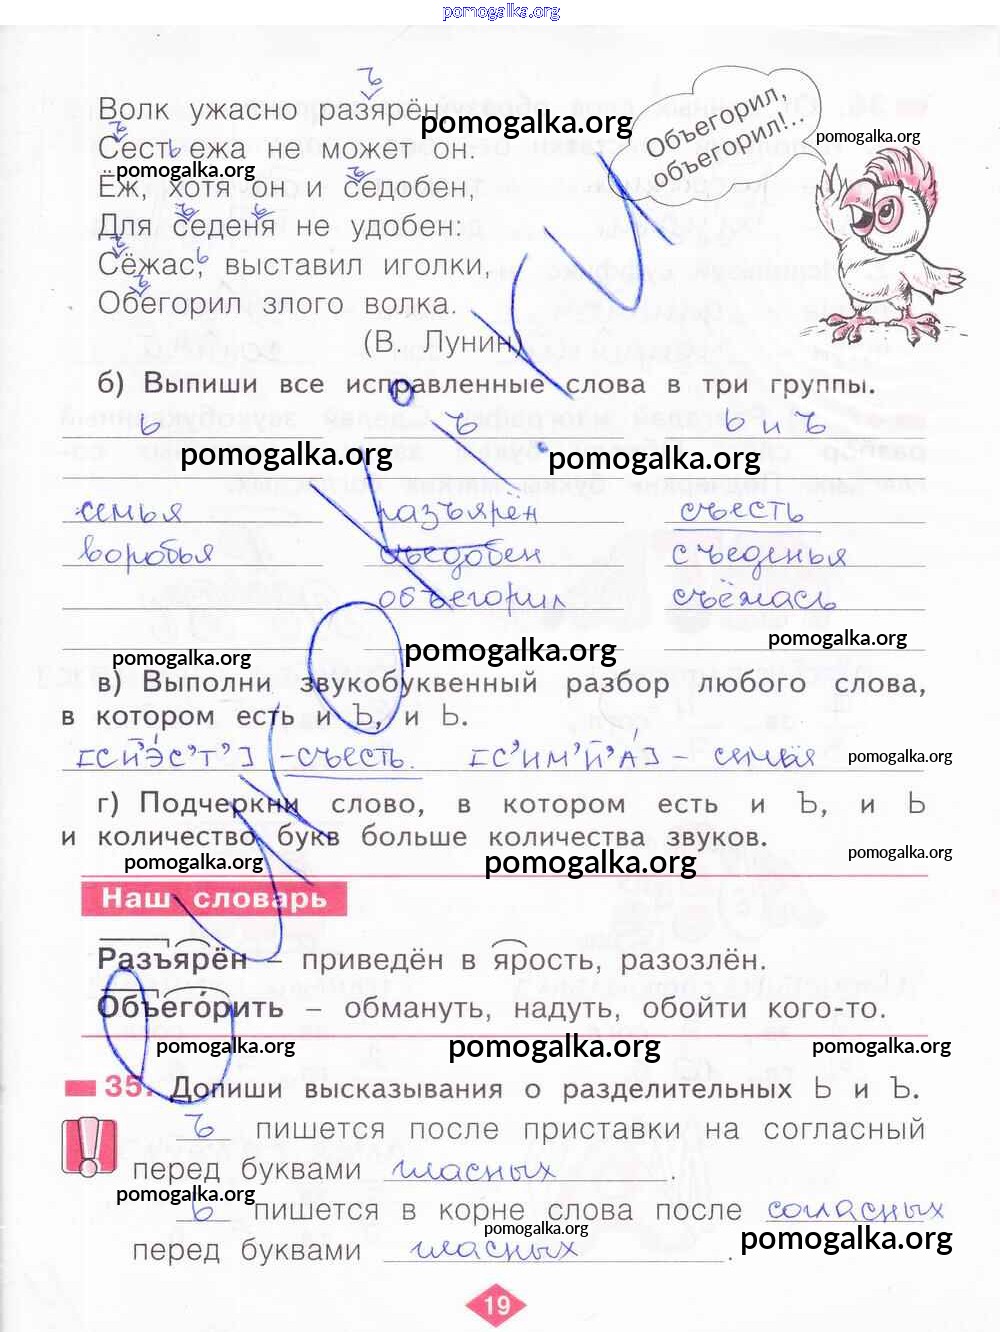 pomogalka.org
ъ
Волк ужасно разярён,
pomogalka.org
Объегорил,
объегорил!..
pomogalka.org
ъ ь
Сест ежа не может он.
pomogalka.org
ъ
Ёж, хотя он и седобен,
ъ ь
Для седеня не удобен:
ъ ь
Сёжас, выставил иголки,
ъ
Обегорил злого волка.
(В. Лунин)
б) Выпиши все исправленные слова в три группы.
ь ъ ь и ъ
pomogalka.org pomogalka.org
семья разъярён съесть
воробья съедобен съеденья
объегорил съёжась
pomogalka.org pomogalka.org pomogalka.org
в) Выполни звукобуквенный разбор любого слова,
в котором есть и Ъ, и Ь.
[сй'эс'т'] - съесть. [с'им'й'а] - семья
pomogalka.org
г) Подчеркни слово, в котором есть и Ъ, и Ь
и количество букв больше количества звуков.
pomogalka.org pomogalka.org pomogalka.org
Наш словарь
Разъярён – приведён в ярость, разозлён.
Объего́рить – обмануть, надуть, обойти кого-то.
pomogalka.org pomogalka.org pomogalka.org
35. Допиши высказывания о разделительных Ь и Ъ.
ъ пишется после приставки на согласный
перед буквами гласных.
pomogalka.org
ь пишется в корне слова после согласных
pomogalka.org pomogalka.org
перед буквами гласных.
19